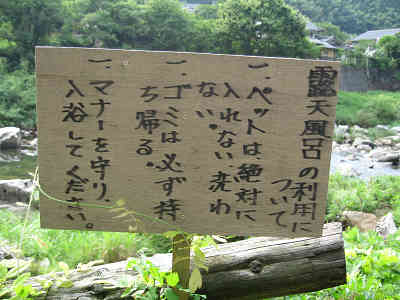 露天風呂の利用に
ついて
一、ペットは、絶対に
入れない。洗わ
ない。
一、ゴミは必ず持
ち帰る。
一、マナーを守り、
入浴してください。